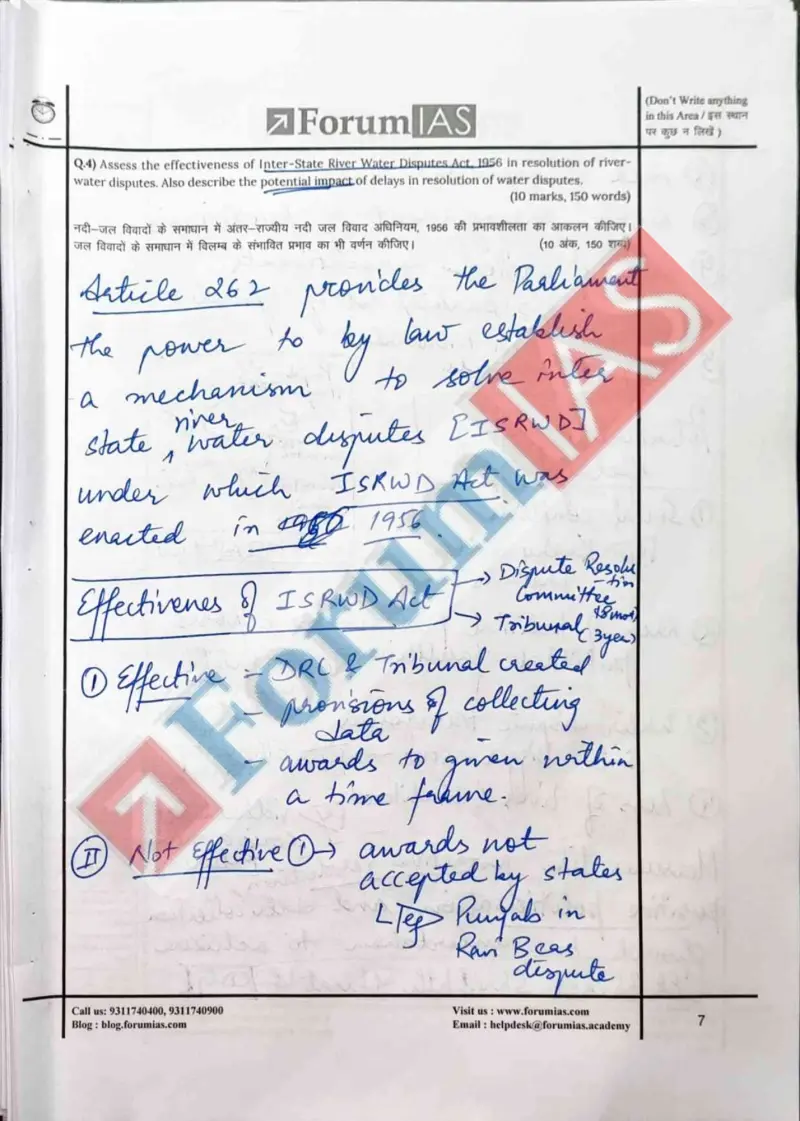 ForumIAS
(Don't Write anything
in this Area / इस स्थान
पर कुछ न लिखें )
Q.4) Assess the effectiveness of Inter-State River Water Disputes Act, 1956 in resolution of river-
water disputes. Also describe the potential impact of delays in resolution of water disputes.
(10 marks, 150 words)
नदी–जल विवादों के समाधान में अंतर–राज्यीय नदी जल विवाद अधिनियम, 1956 की प्रभावशीलता का आकलन कीजिए।
जल विवादों के समाधान में विलम्ब के संभावित प्रभाव का भी वर्णन कीजिए। (10 अंक, 150 शब्द)
Article 262 provides the Parliament
the power to by law establish
a mechanism to solve inter
state river water disputes [ISRWD]
under which ISRWD Act was
enacted in 1956
Effectivenes of ISRWD Act
→ Dispute Resolu
-tion
Committee
→ Tribunal (3 year)
① Effective - DRC & Tribunal created
- provisions of collecting
data
- awards to given within
a time frame.
II Not Effective ① → awards not
accepted by states
eg Punjab in
Ravi Beas
dispute
ForumIAS
Call us: 9311740400, 9311740900
Blog : blog.forumias.com
Visit us : www.forumias.com
Email : helpdesk@forumias.academy
7